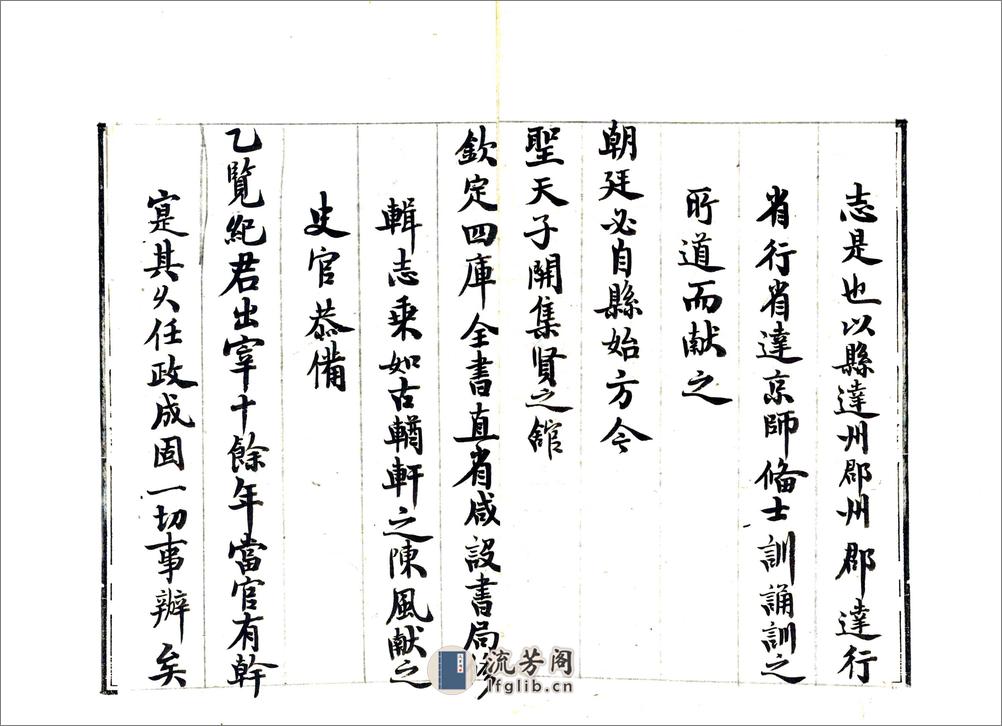 志是也以縣達州郡州郡達行
省行省達京師俻士訓誦訓之
所道而献之
朝廷必自縣始方今
聖天子開集賢之舘
欽定四庫全書直省咸設書局
輯志乗如古輶軒之陳風献之
史官恭備
乙覽紀君出宰十餘年當官有幹
寔其久任政成固一切事辦矣
流芳阁
lfglib.cn